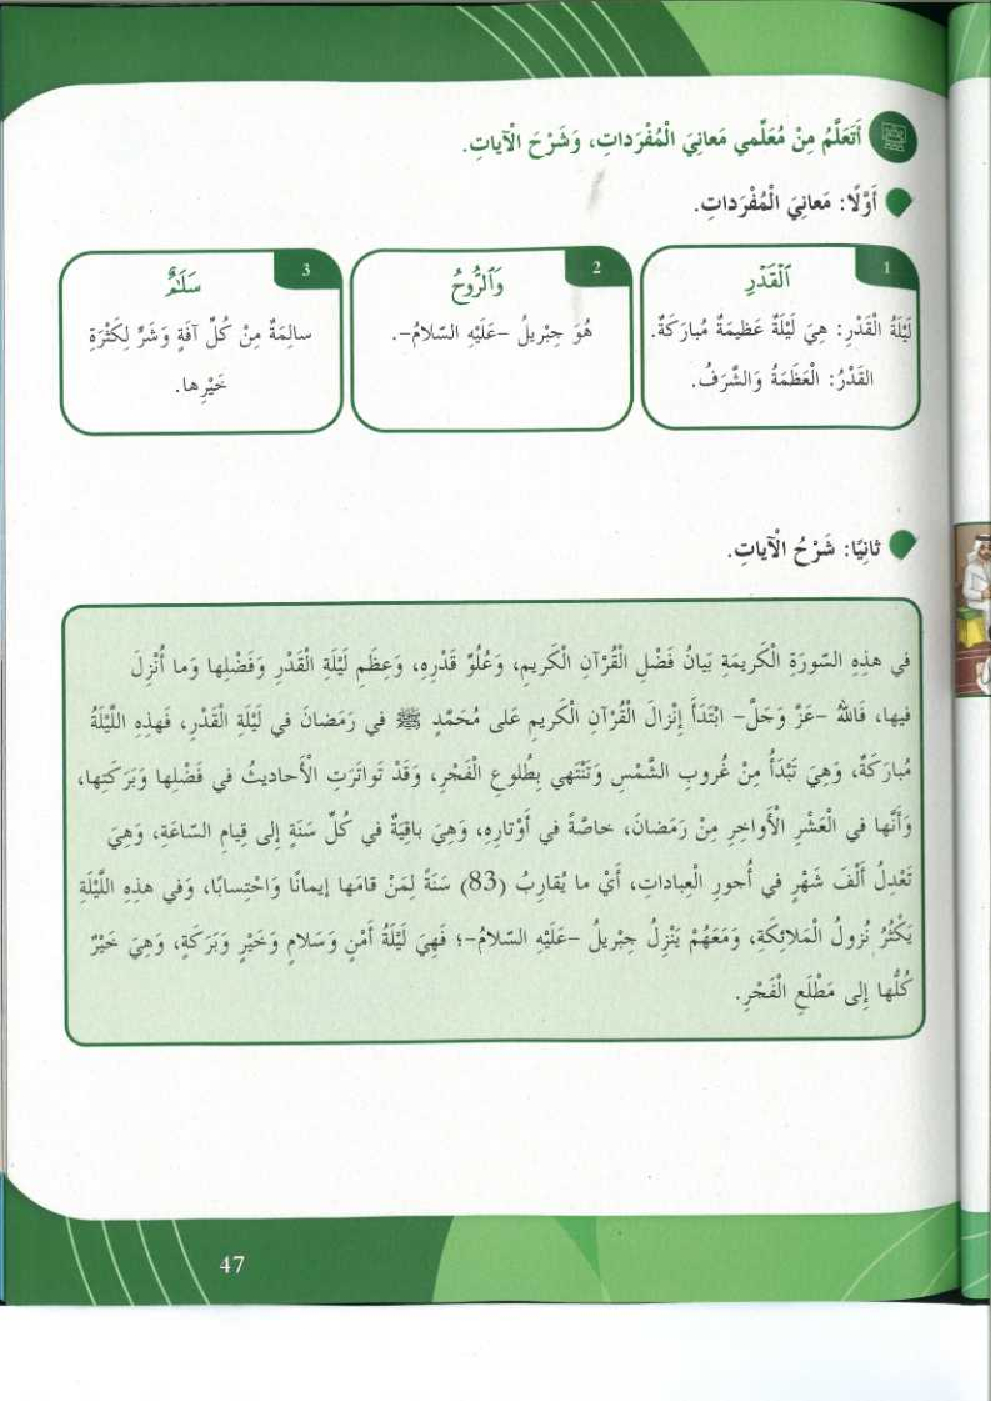 أَتَعَلَّمُ مِنْ مُعَلِّمي مَعانِيَ الْمُفْرَداتِ، وَشَرْحَ الْآياتِ.
أَوَّلًا: مَعانِيَ الْمُفْرَداتِ.
1
ٱلْقَدْرِ
لَيْلَةُ الْقَدْرِ: هِيَ لَيْلَةٌ عَظيمَةٌ مُبارَكَةٌ.
القَدْرُ: الْعَظَمَةُ وَالشَّرَفُ.
2
وَٱلرُّوحُ
هُوَ جِبْريلُ -عَلَيْهِ السّلامُ-.
3
سَلَٰمٌ
سالِمَةٌ مِنْ كُلِّ آفَةٍ وَشَرٍّ لِكَثْرَةِ
خَيْرِها.
ثانِيًا: شَرْحُ الْآياتِ.
في هذِهِ السّورَةِ الْكَريمَةِ بَيانُ فَضْلِ الْقُرْآنِ الْكَريمِ، وَعُلُوِّ قَدْرِهِ، وَعِظَمِ لَيْلَةِ الْقَدْرِ وَفَضْلِها وَما أُنْزِلَ
فيها، فَاللهُ -عَزَّ وَجَلَّ- ابْتَدَأَ إِنْزالَ الْقُرْآنِ الْكَريمِ عَلى مُحَمَّدٍ ﷺ في رَمَضانَ في لَيْلَةِ الْقَدْرِ، فَهذِهِ اللَّيْلَةُ
مُبارَكَةٌ، وَهِيَ تَبْدَأُ مِنْ غُروبِ الشَّمْسِ وَتَنْتَهي بِطُلوعِ الْفَجْرِ، وَقَدْ تَواتَرَتِ الْأَحاديثُ في فَضْلِها وَبَرَكَتِها،
وَأَنَّها في الْعَشْرِ الْأَواخِرِ مِنْ رَمَضانَ، خاصَّةً في أَوْتارِهِ، وَهِيَ باقِيَةٌ في كُلِّ سَنَةٍ إِلى قِيامِ السّاعَةِ، وَهِيَ
تَعْدِلُ أَلْفَ شَهْرٍ في أُجورِ الْعِباداتِ، أَيْ ما يُقارِبُ (83) سَنَةً لِمَنْ قامَها إيمانًا وَاحْتِسابًا، وَفي هذِهِ اللَّيْلَةِ
يَكْثُرُ نُزولُ الْمَلائِكَةِ، وَمَعَهُمْ يَنْزِلُ جِبْريلُ -عَلَيْهِ السّلامُ-؛ فَهِيَ لَيْلَةُ أَمْنٍ وَسَلامٍ وَخَيْرٍ وَبَرَكَةٍ، وَهِيَ خَيْرٌ
كُلُّها إِلى مَطْلَعِ الْفَجْرِ.
47